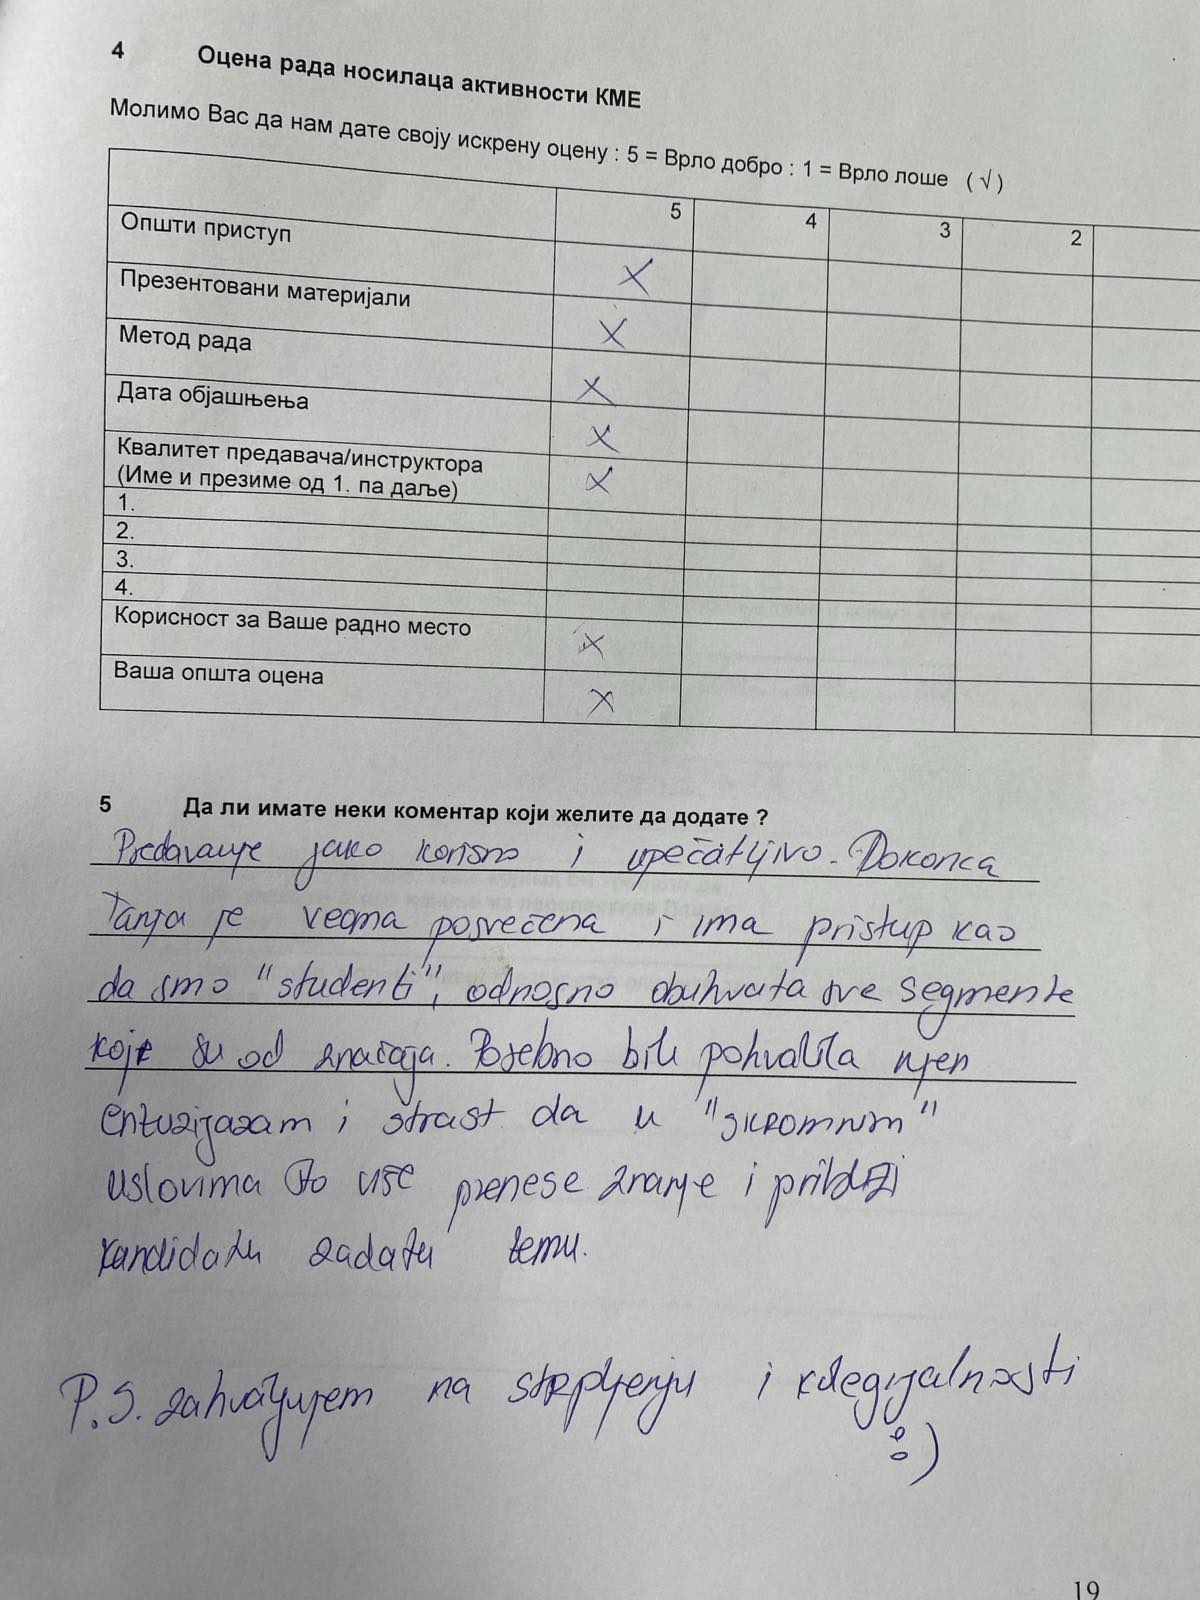 4 Оцена рада носилаца активности КМЕ
Молимо Вас да нам дате своју искрену оцену : 5 = Врло добро : 1 = Врло лоше (√)
5 4 3 2
Општи приступ X
Презентовани материјали X
Метод рада X
Дата објашњења X
Квалитет предавача/инструктора X
(Име и презиме од 1. па даље)
1.
2.
3.
4.
Корисност за Ваше радно место X
Ваша општа оцена X
5 Да ли имате неки коментар који желите да додате ?
Predavanje jako korisno i upečatljivo. Doktorica
Tanja je veoma posvećena i ima pristup kao
da smo "studenti", odnosno obuhvata sve segmente
koje su od značaja. Posebno bih pohvalila njen
entuzijazam i strast da u "skromnim"
uslovima što više prenese znanje i približi
kandidatu zadatu temu.
P.S. zahvaljujem na strpljenju i kolegijalnosti
:)
19